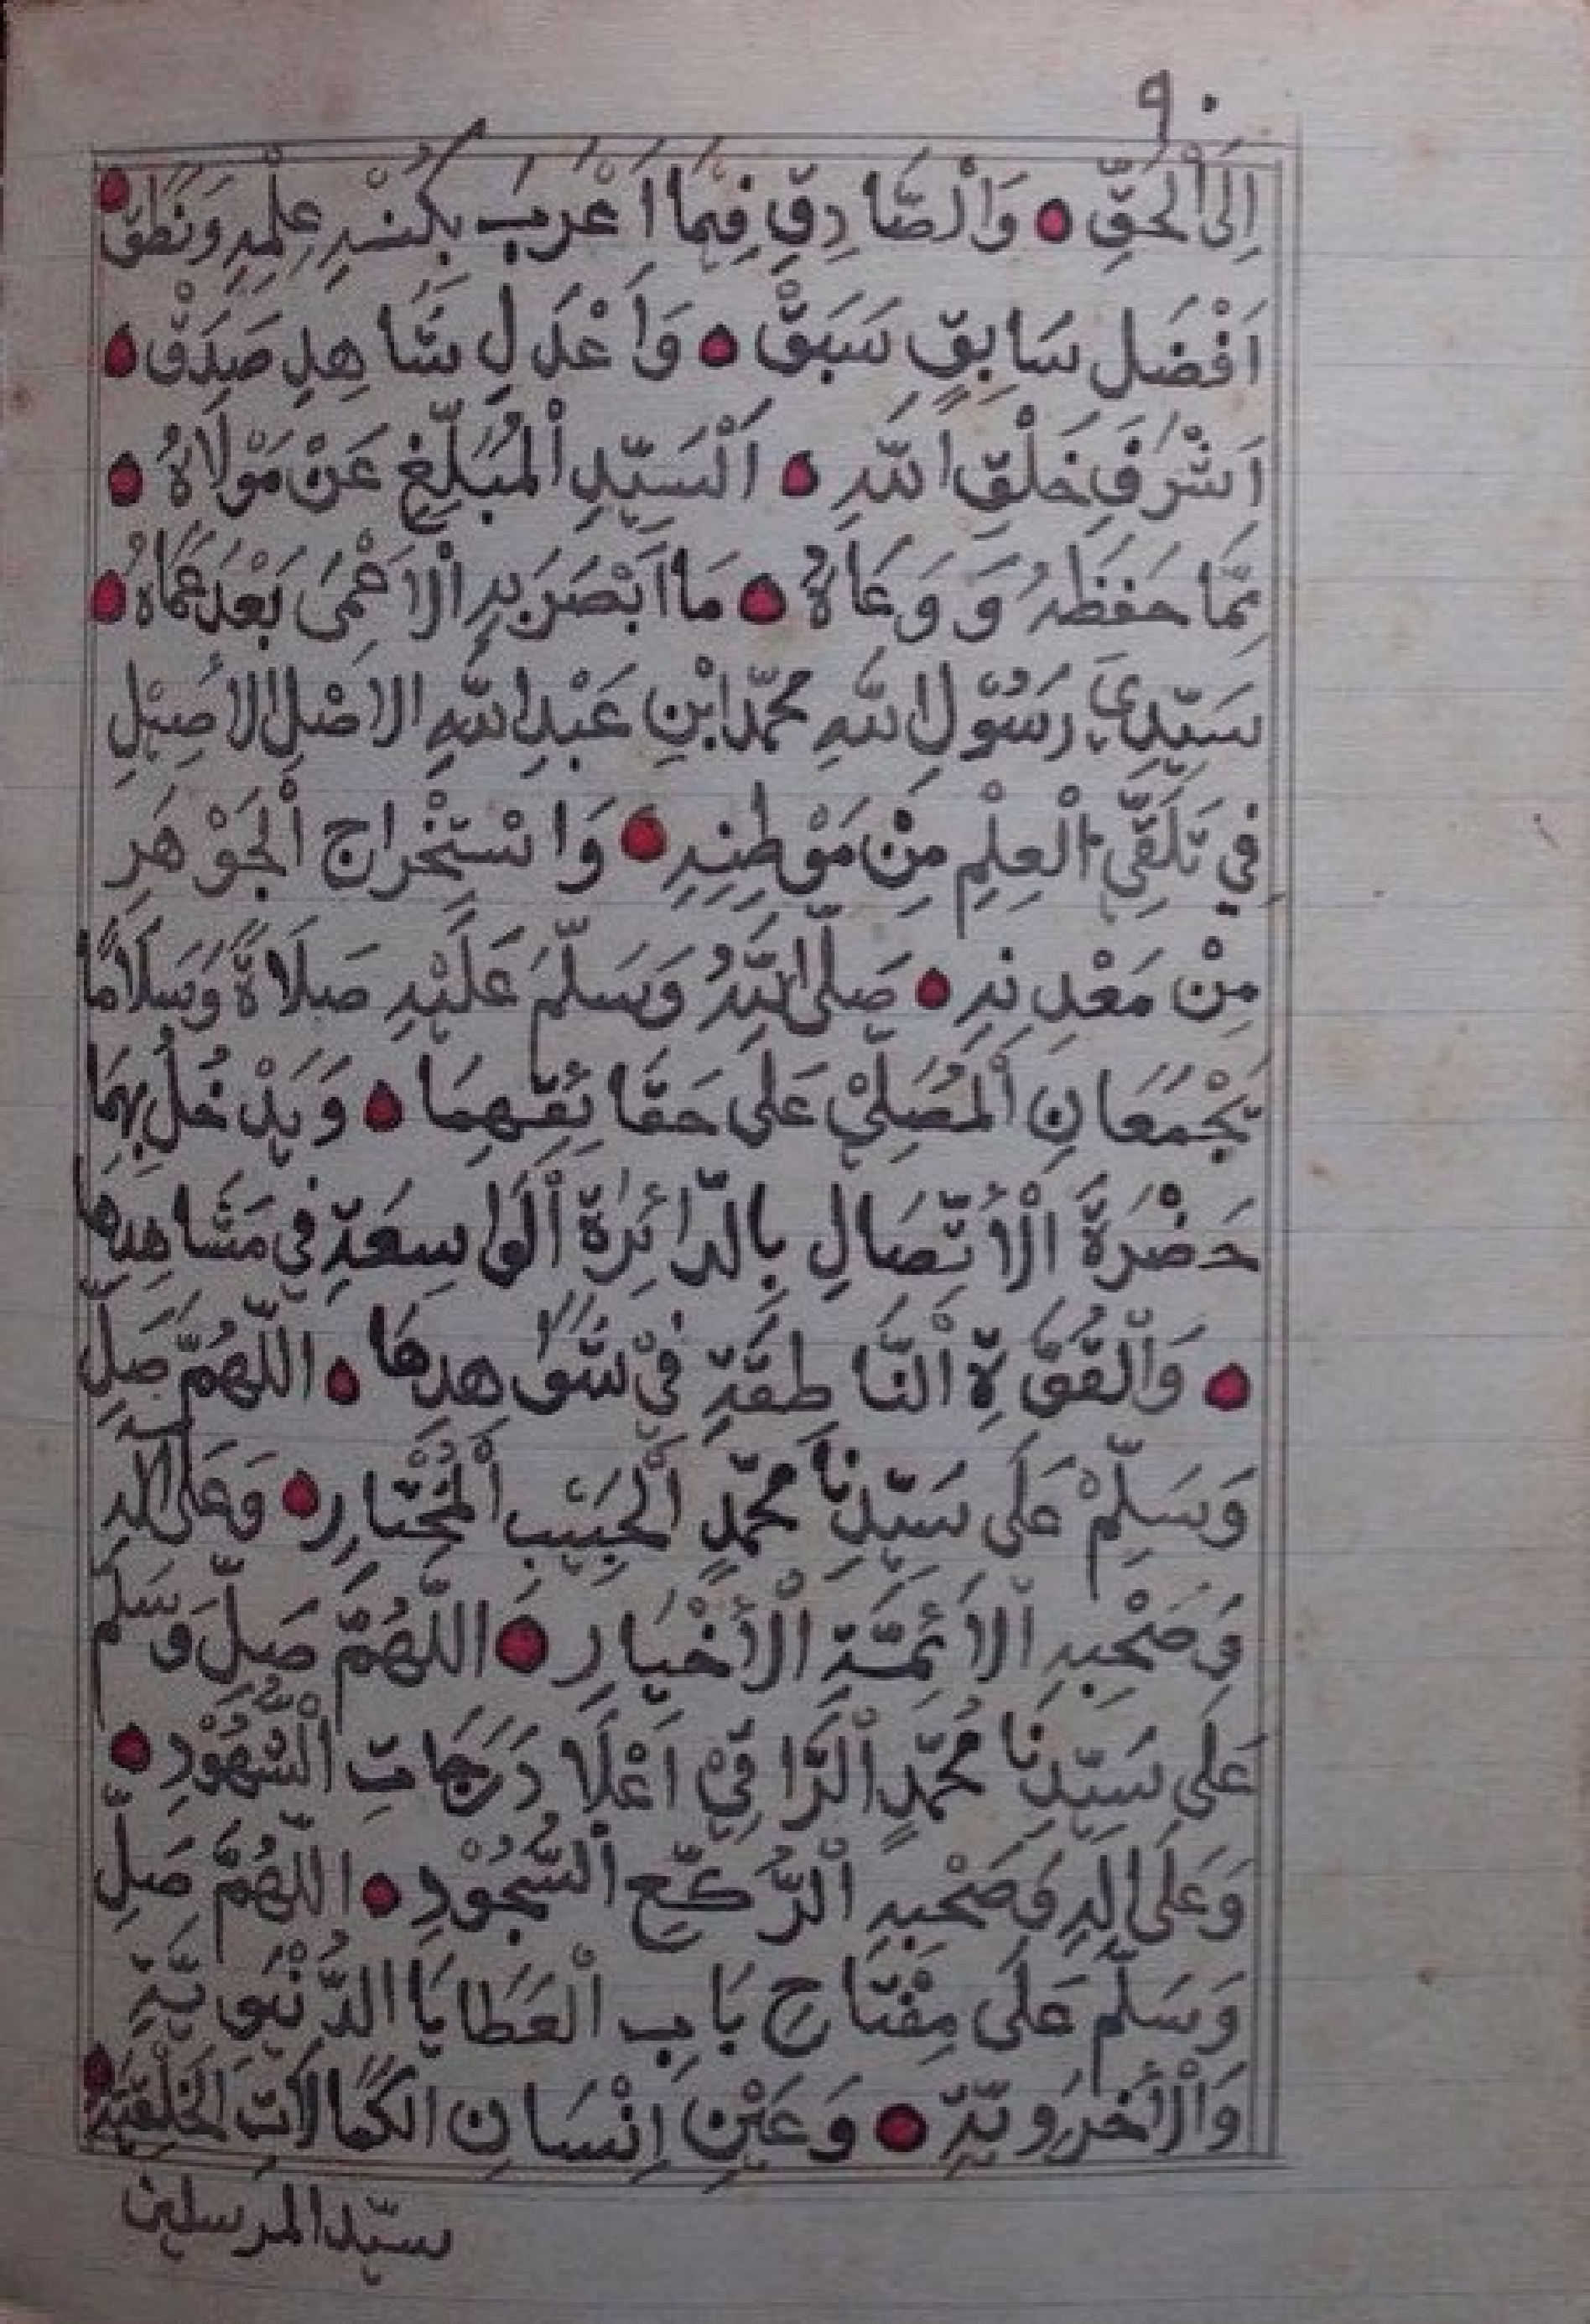 ٩٠
اِلَى الْحَقِّ وَالْصَّادِقِ فِيْمَا اَعْرَبَ بِكُنْهِ عِلْمِهِ وَنَطَقْ
اَفْضَلِ سَابِقٍ سَبَقْ وَاَعْدَلِ شَاهِدٍ صَدَقْ
اَشْرَفِ خَلْقِ اللّٰهِ اَلْسَيِّدِ الْمُبَلِّغِ عَنْ مَوْلَاهُ
بِمَّا حَفَظَهُ وَ وَعَاهُ مَا اَبْصَرَ بِهِ الْاَعْمَى بَعْدَ عَمَاهُ
سَيِّدِي رَسُوْلِ اللّٰهِ مُحَمَّدِ ابْنِ عَبْدِ اللّٰهِ الاَصْلِ الاَصِيْلِ
فِي تَلَقِّيْ الْعِلْمِ مِنْ مَوْطِنِهِ وَاسْتِخْرَاجِ الْجَوْهَرِ
مِنْ مَعْدِنِهِ صَلَّى اللّٰهُ وَسَلَّمَ عَلَيْهِ صَلَاةً وَسَلَامًا
يَجْمَعَانِ الْمُصَلِّيْ عَلَى حَقَائِقِهِمَا وَيَدْخُلُ بِهِمَا
حَضْرَةَ الْأِتِّصَالِ بِالدَّائِرَةِ الْوَاسِعَةِ فِي مَشَاهِدِهَا
وَالْقُوَّةِ الْنَّاطِقَةِ فِيْ شَوَاهِدِهَا اللّٰهُمَّ صَلِّ
وَسَلِّمْ عَلَى سَيِّدِنَا مُحَمَّدٍ الْحَبِيْبِ الْمُخْتَارِ وَعَلَى اٰلِهِ
وَصَحْبِهِ الْاَئِمَّةِ الْأَخْيَارِ اللّٰهُمَّ صَلِّ وَسَلِّمْ
عَلَى سَيِّدِنَا مُحَمَّدٍ الْرَّاقِيْ اَعْلَا دَرَجَاتِ الْشُّهُوْدِ
وَعَلَى اٰلِهِ وَصَحْبِهِ الْرُّكَّعِ الْسُّجُوْدِ اللّٰهُمَّ صَلِّ
وَسَلِّمْ عَلَى مِفْتَاحِ بَابِ الْعَطَايَا الدُّنْيَوِيَّةِ
وَالْأُخْرَوِيَّةِ وَعَيْنِ اِنْسَانِ الْكَمَالَاتِ الْخَلْقِيَّةِ
سيّد المرسلين